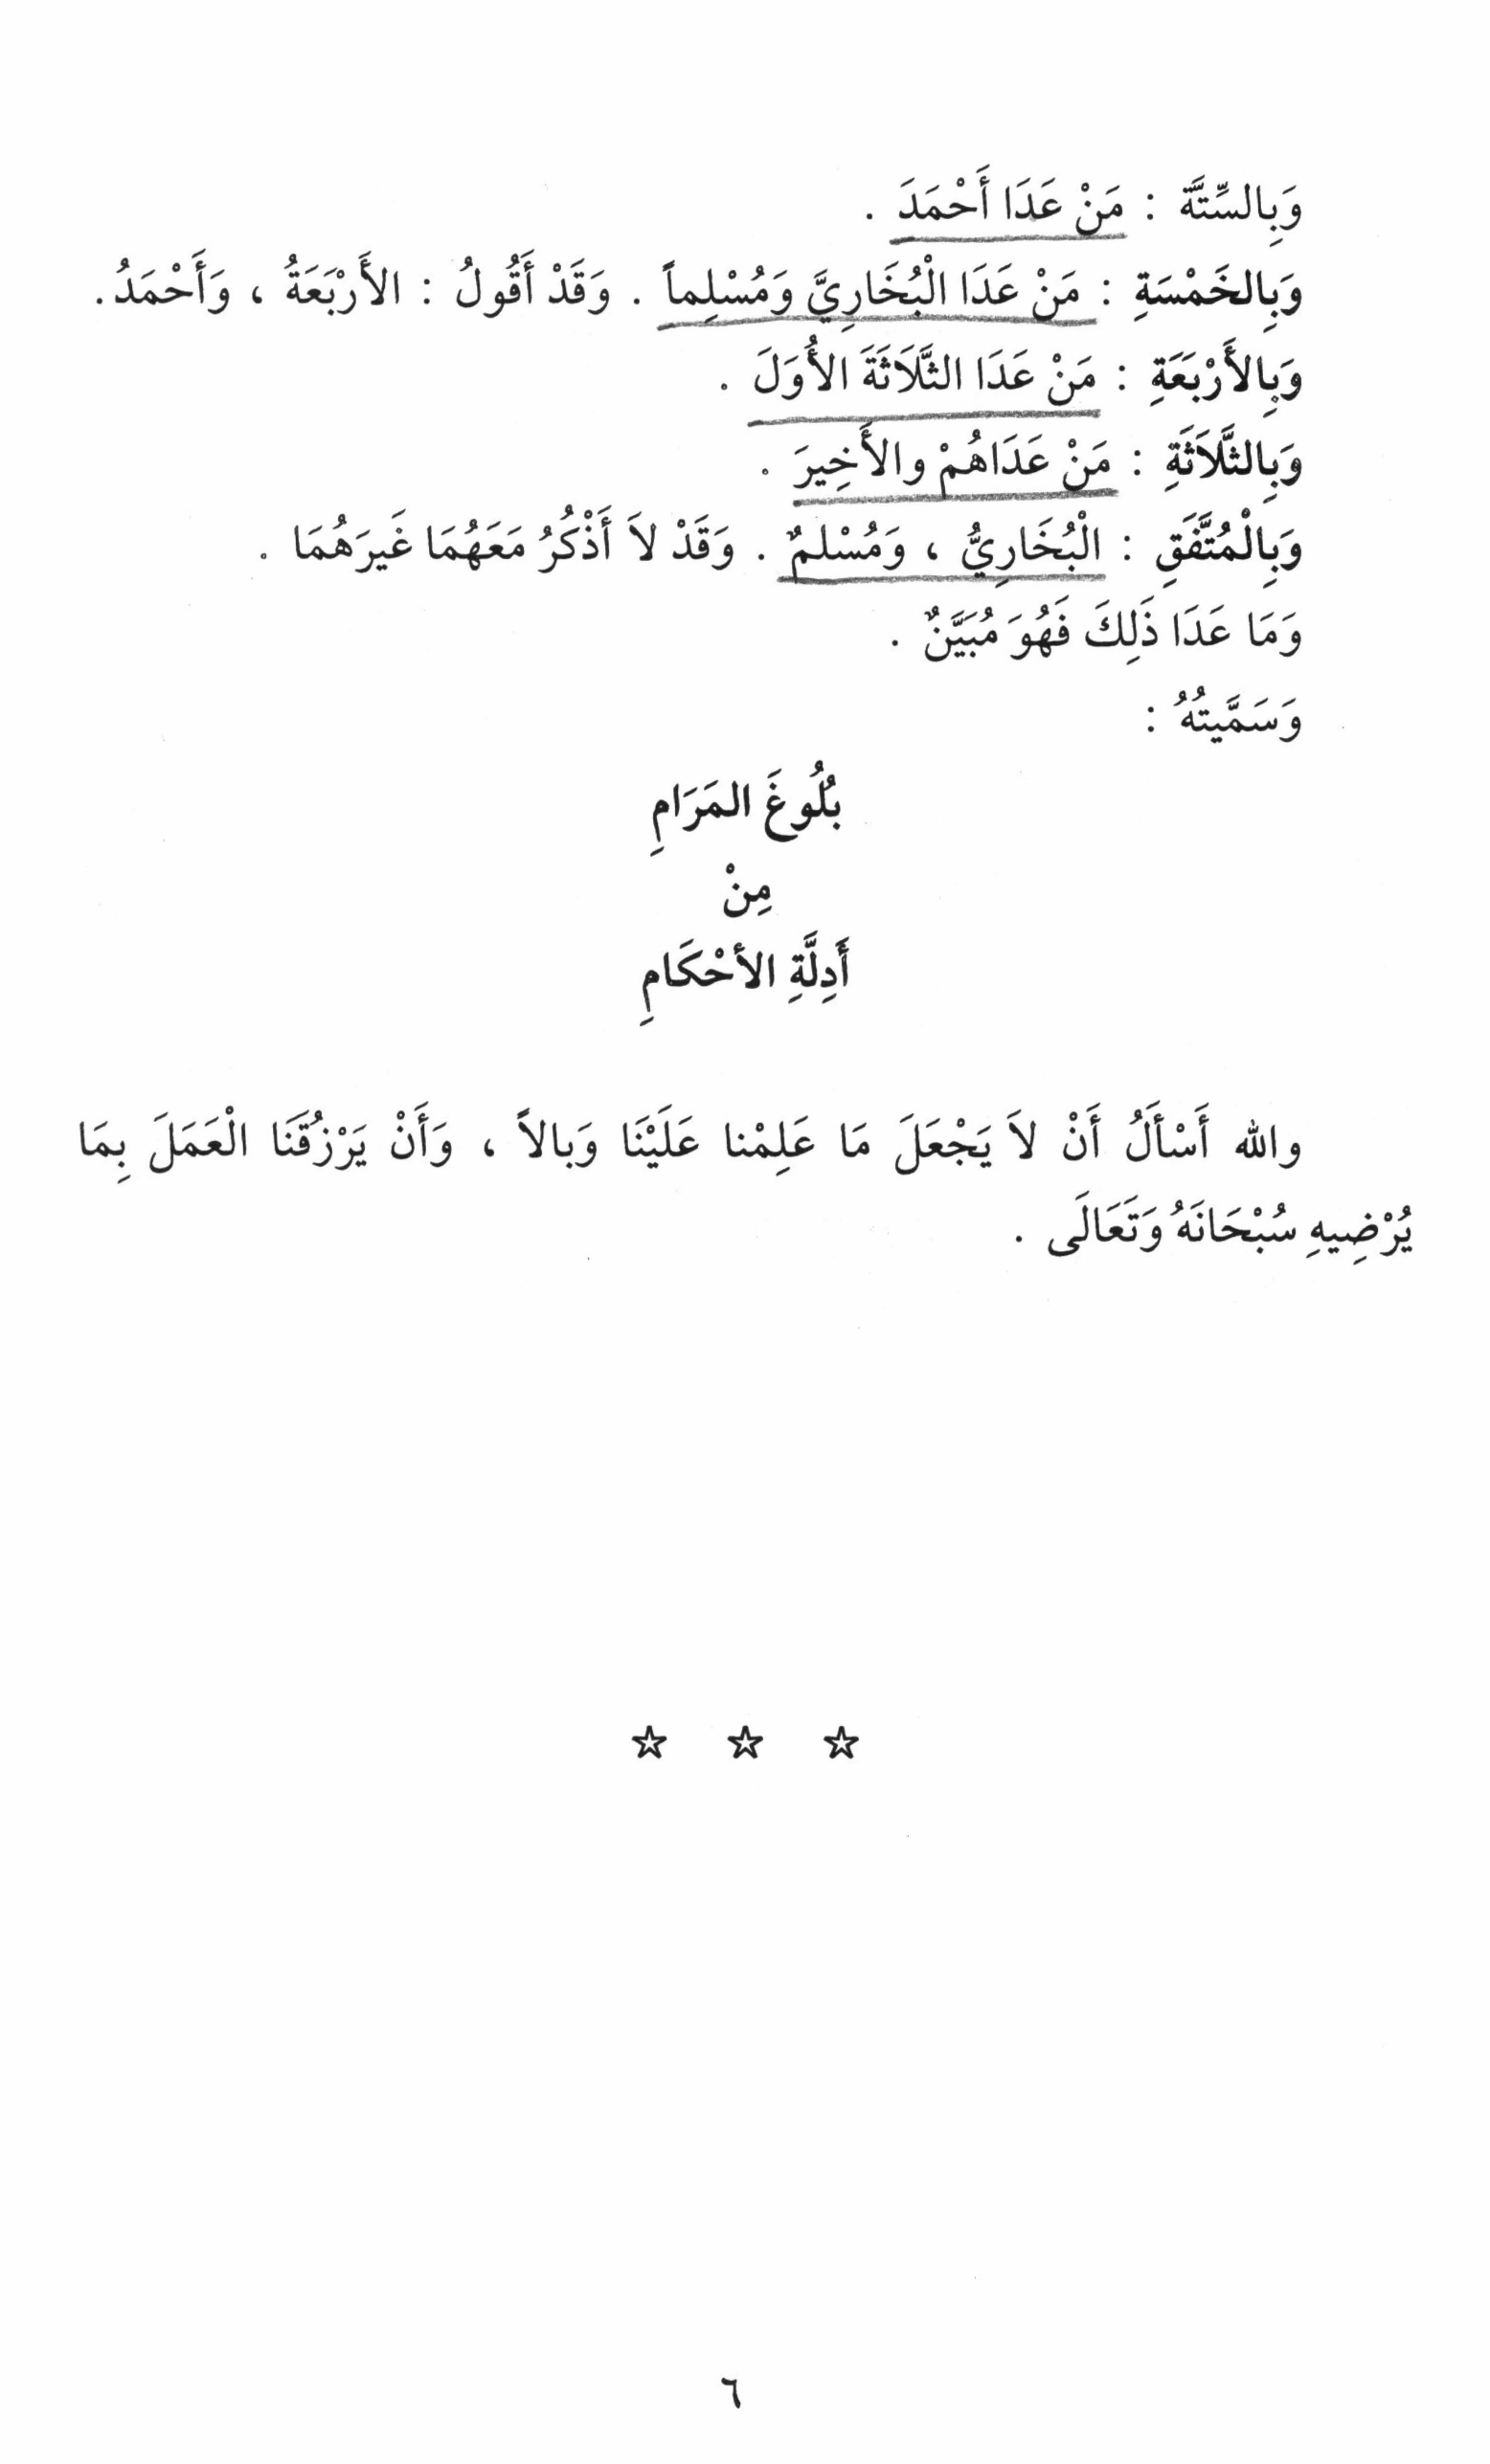 وَبِالسِّتَّة : مَنْ عَدَا أَحْمَدَ .
وَبِالخَمْسَةِ : مَنْ عَدَا الْبُخَارِيَّ وَمُسْلِماً . وَقَدْ أَقُولُ : الأَرْبَعَةُ ، وَأَحْمَدُ .
وَبِالأَرْبَعَةِ : مَنْ عَدَا الثَّلَاثَةَ الأُوَلَ .
وَبِالثَّلاَثَةِ : مَنْ عَدَاهُمْ والأَخِيرَ .
وَبِالْمُتَّفَقِ : الْبُخَارِيُّ ، وَمُسْلمٌ . وَقَدْ لاَ أَذْكُرُ مَعَهُمَا غَيرَهُمَا .
وَمَا عَدَا ذَلِكَ فَهُوَ مُبَيَّنٌ .
وَسَمَّيتُهُ :
بُلُوغَ المَرَامِ
مِنْ
أَدِلَّةِ الأحْكَامِ
والله أَسْأَلُ أَنْ لاَ يَجْعَلَ مَا عَلِمْنا عَلَيْنَا وَبالاً ، وَأَنْ يَرْزُقَنَا الْعَمَلَ بِمَا
يُرْضِيهِ سُبْحَانَهُ وَتَعَالَى .
☆ ☆ ☆
٦